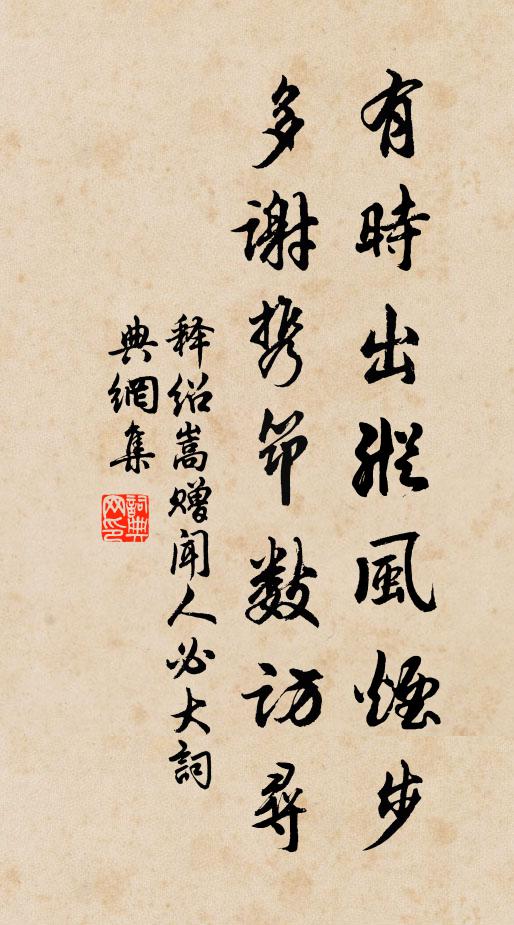 有時出縱風煙步
多謝携筇數訪尋
釋紹嵩贈聞人必大詞
典網集
詞典網印